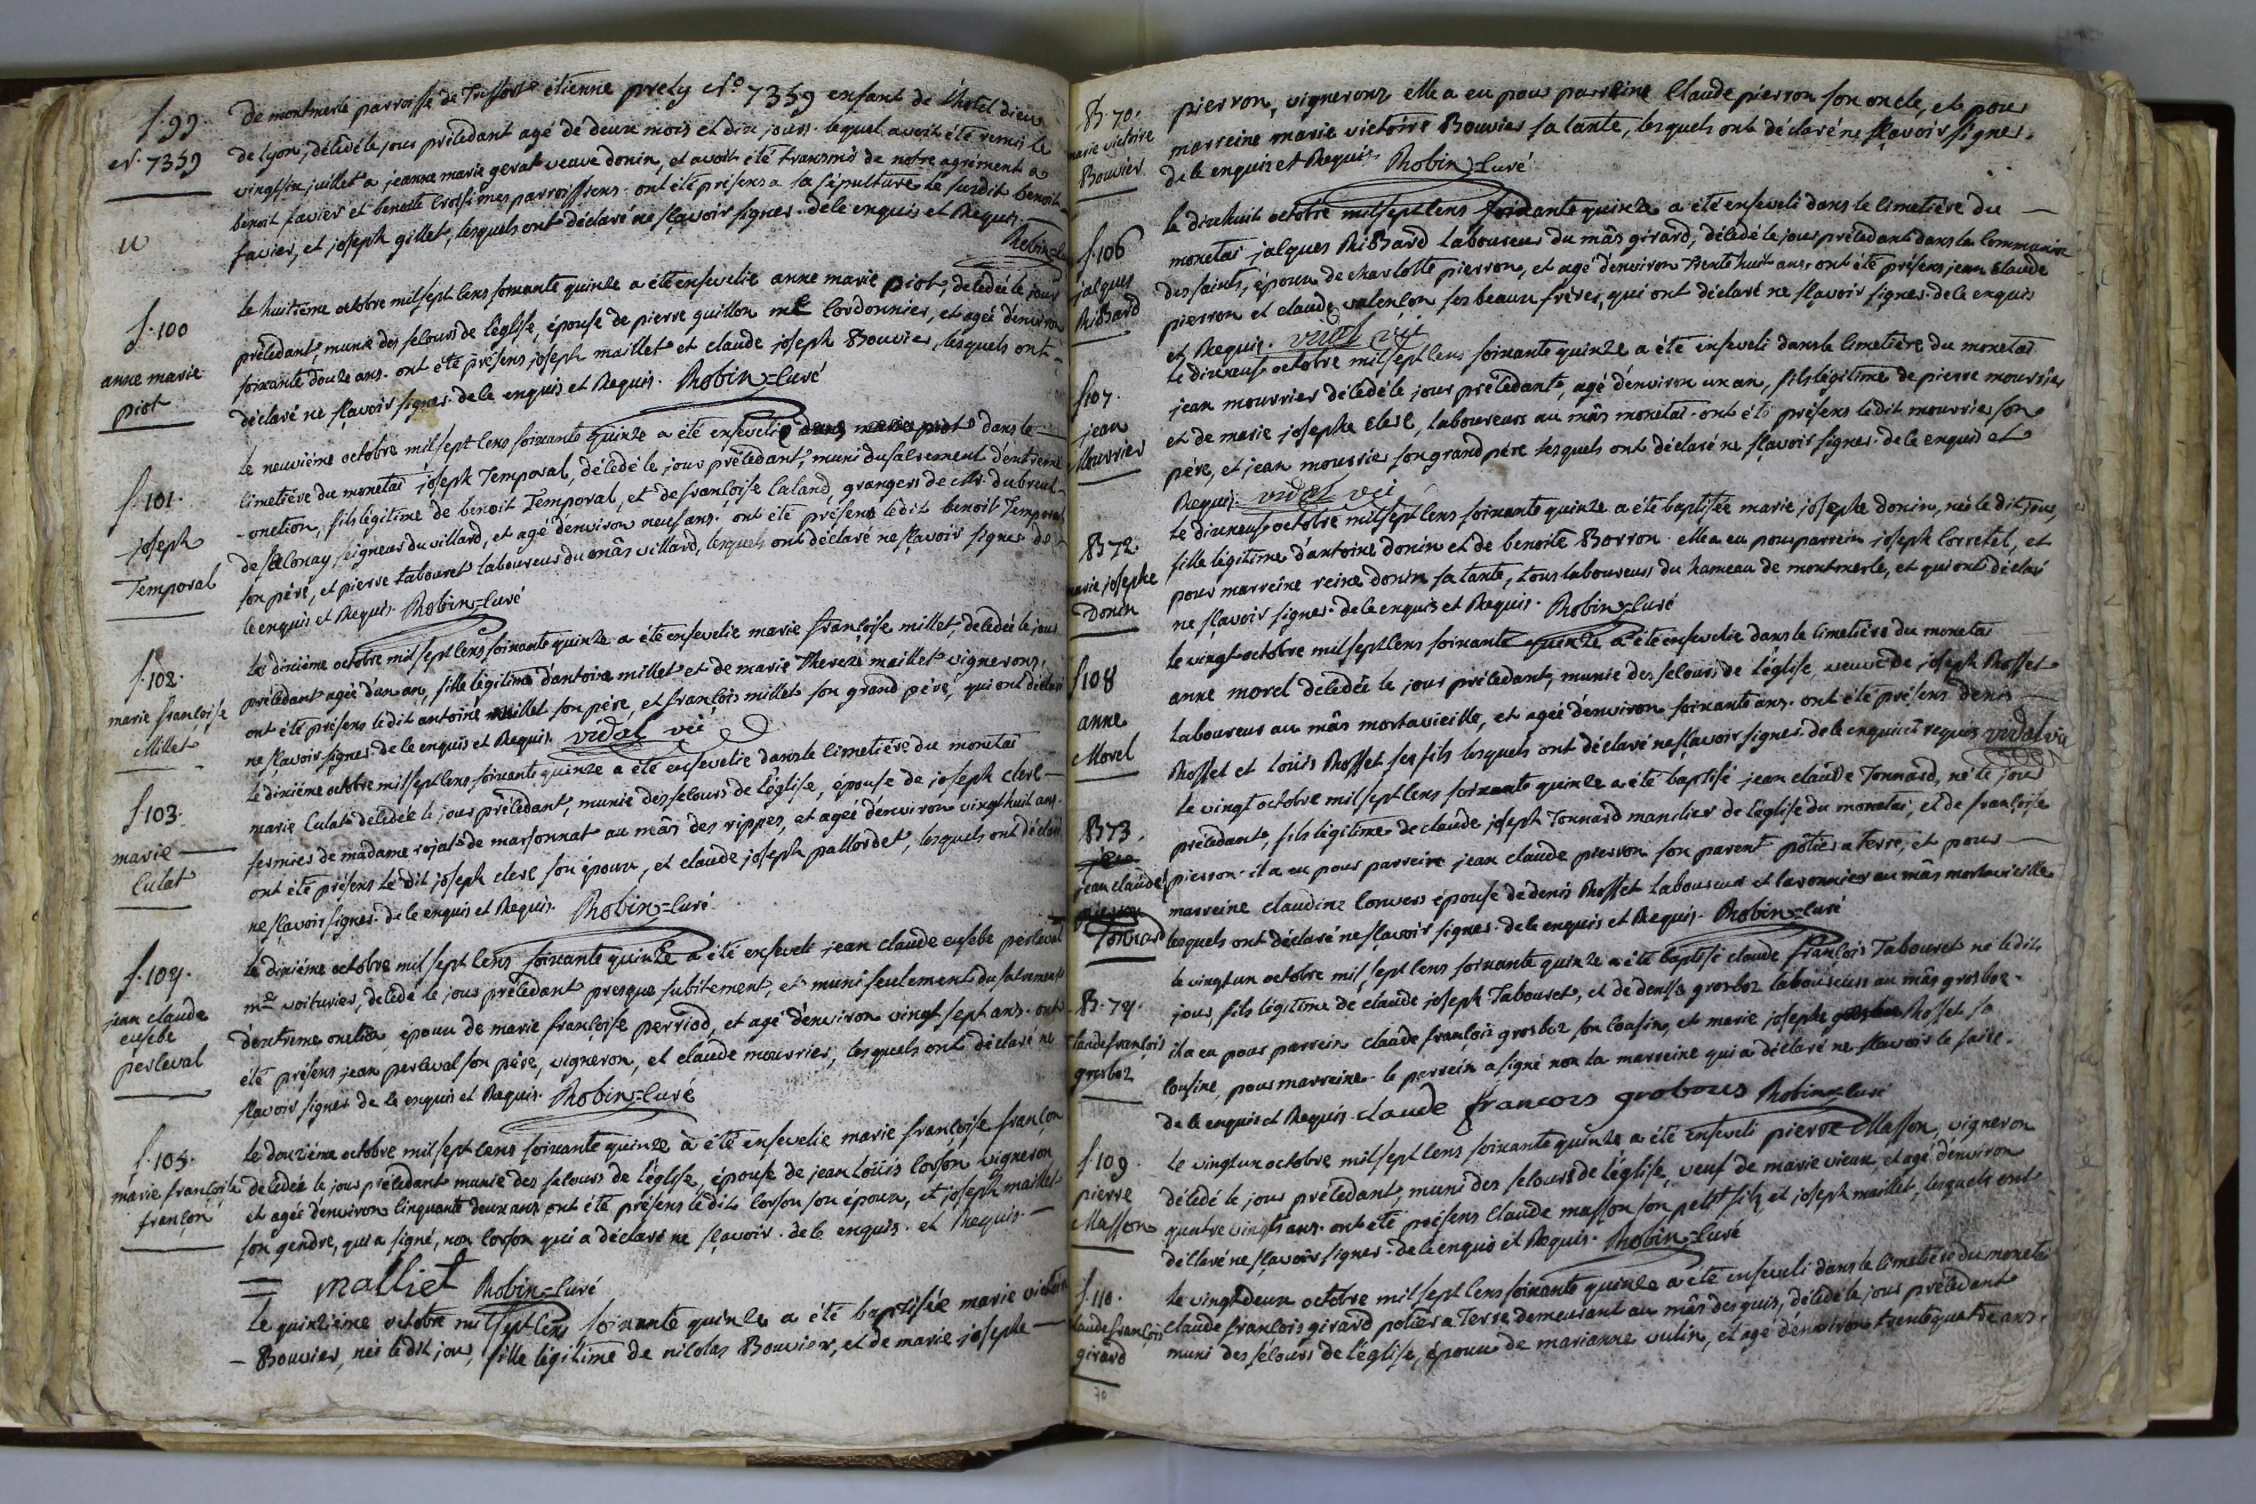 f. 99.
N. 7359
de montmerle parroisse de Treffort etienne prety N.o 7359 enfant de l'hotel dieu
de lyon, décédé le jour précédant agé de deux mois et dix jours. lequel avoit été remis le
vingtsix juillet a jeanne marie gerat veuve donin, et avoit été transmis de notre agrément a
benoit favier et benoite croisi mes parroissiens. ont été présens a sa sépulture le susdit benoit
favier, et joseph gillet, lesquels ont déclaré ne sçavoir signer. de ce enquis et Requis.
Robin=c
f. 100
anne marie
piot
le huitième octobre mil sept cens soixante quinze a été ensevelie anne marie piot, décédée le jour
précédant, munie des secours de l'église, épouse de pierre guillon me cordonnier, et agée d'environ
soixante douze ans. ont été présens joseph maillet et claude joseph Bouvier, lesquels ont
déclaré ne sçavoir signer. de ce enquis et Requis. Robin=curé
f. 101.
joseph
Temporal
le neuvième octobre mil sept cens soixante quinze a été enseveli anne marie piot dans le
cimetière du monetai joseph Temporal, décédé le jour précédant, muni du sacrement d'extreme
-onction, fils légitime de benoit Temporal, et de françoise caland, grangers de Mr. dubreul
de sacconay seigneur du villard, et agé d'environ neuf ans. ont été présens ledit benoit Temporal
son père, et pierre tabouret laboureur du mâs villard, lesquels ont déclaré ne sçavoir signer de
ce enquis et Requis. Robin=curé
f. 102.
marie françoise
Millet
le dixième octobre mil sept cens soixante quinze a été ensevelie marie françoise millet, décédée le jour
précédant agée d'un an, fille légitime d'antoine millet et de marie Therese maillet vignerons.
ont été présens ledit antoine millet son père, et françois millet son grand père, qui ont déclaré
ne sçavoir signer. de ce enquis et Requis. vidal vic
f. 103.
marie
Culat
le dixième octobre mil sept cens soixante quinze a été ensevelie dans le cimetière du monetai
marie Culat décédée le jour précédant, munie des secours de l'église, épouse de joseph clere
fermier de madame rojat de marsonnat au mâs des rippes, et agée d'environ vingt huit ans.
ont été présens le dit joseph clere son époux, et claude joseph pallordet, lesquels ont déclaré
ne sçavoir signer. de ce enquis et Requis. Robin=curé
f. 104.
jean claude
eusebe
perceval
le dixième octobre mil sept cens soixante quinze a été enseveli jean claude eusebe perceval
me voiturier, décédé le jour précédant presque subitement, et muni seulement du sacrement
d'extreme onction, époux de marie françoise perriod, et agé d'environ vingt sept ans. ont
été présens jean perceval son père, vigneron, et claude mourrier, lesquels ont déclaré ne
sçavoir signer de ce enquis et Requis. Robin=curé
f. 105.
marie françoise
françon
le douzième octobre mil sept cens soixante quinze a été ensevelie marie françoise françon
décédée le jour précédant munie des secours de l'église, épouse de jean loüis corson vigneron
et agée d'environ cinquante deux ans. ont été présens ledit corson son époux, et joseph maillet
son gendre, qui a signé, non corson qui a déclaré ne sçavoir. de ce enquis. et Requis.
malliet Robin=curé
le quinzième octobre mil sept cens soixante quinze a été baptisée marie victoire
Bouvier, née ledit jour, fille légitime de nicolas Bouvier, et de marie josephe
B. 70.
marie victoire
Bouvier
pierron, vignerons elle a eu pour parreine Claude pierron son oncle, et pour
marreine marie victoire Bouvier sa tante, lesquels ont déclaré ne sçavoir signer.
de ce enquis et Requis. Robin=curé
f. 106
jacques
RiBard
le dixhuit octobre mil sept cens soixante quinze a été enseveli dans le cimetière du
monetai jacques RiBard laboureur du mâs girard, décédé le jour précédant dans la communion
des saints, époux de charlotte pierron, et agé d'environ trente huit ans. ont été présens jean claude
pierron et claude valençon ses beaux frères, qui ont déclaré ne sçavoir signer. de ce enquis
et Requis. vidal vic
f. 107.
jean
Mourrier
le dixneuf octobre mil sept cens soixante quinze a été enseveli dans le cimetière du monetai
jean mourrier décédé le jour précédant, agé d'environ un an, fils légitime de pierre mourrier
et de marie josephe clere, laboureurs au mâs monetai. ont été présens ledit mourrier son
père, et jean mourrier son grand père lesquels ont déclaré ne sçavoir signer. de ce enquis et
Requis. vidal vic
B 72.
marie josephe
Donin
le dixneuf octobre mil sept cens soixante quinze a été baptisée marie josephe donin, née le dit jour,
fille légitime d'antoine donin et de benoite Borron. elle a eu pour parrein joseph Corretel, et
pour marreine reine donin sa tante, tous laboureurs du hameau de montmerle, et qui ont déclaré
ne sçavoir signer. de ce enquis et Requis. Robin=curé
f 108
anne
Morel
le vingt octobre mil sept cens soixante quinze a été ensevelie dans le cimetière du monetai
anne morel décédée le jour précédant, munie des secours de l'église, veuve de joseph Rosset
laboureur au mâs mortavieille, et agée d'environ soixante ans. ont été présens denis
Rosset et loüis Rosset ses fils lesquels ont déclaré ne sçavoir signer. de ce enquis et requis vidal vic
B 73.
jean claude
pierron
Tonnard
le vingt octobre mil sept cens soixante quinze a été baptisé jean claude Tonnard, né le jour
précédant, fils légitime de claude joseph Tonnard manilier de l'église du monetai, et de françoise
pierron. il a eu pour parrein jean claude pierron son parent potier a terre, et pour
marreine claudine convers épouse de denis Rosset laboureur et savonnier au mâs mortavieille
lesquels ont déclaré ne sçavoir signer. de ce enquis et Requis. Robin=curé
B. 74.
claude françois
grosboz
le vingtun octobre mil sept cens soixante quinze a été baptisé claude françois Tabouret né ledit
jour, fils légitime de claude joseph Tabouret, et de denise grosboz laboureurs au mâs grosboz.
il a eu pour parrein claude françois grosboz son cousin, et marie josephe grosboz Rosset sa
cousine pour marreine. le parrein a signé non la marreine qui a déclaré ne sçavoir le faire.
de ce enquis et Requis. claude francois grobous Robin=curé
f. 109.
pierre
Masson
le vingtun octobre mil sept cens soixante quinze a été enseveli pierre Masson, vigneron
décédé le jour précédant, muni des secours de l'église, veuf de marie vieux, et agé d'environ
quatre vingts ans. ont été présens claude masson son petit fils, et joseph maillet, lesquels ont
déclaré ne sçavoir signer. de ce enquis et Requis. Robin=curé
f. 110.
claude françois
girard
le vingtdeux octobre mil sept cens soixante quinze a été enseveli dans le cimetière du monetai
claude françois girard potier a Terre demeurant au mâs desguis, décédé le jour précédant
muni des secours de l'église, époux de marianne vulin, et agé d'environ trentequatre ans.
70